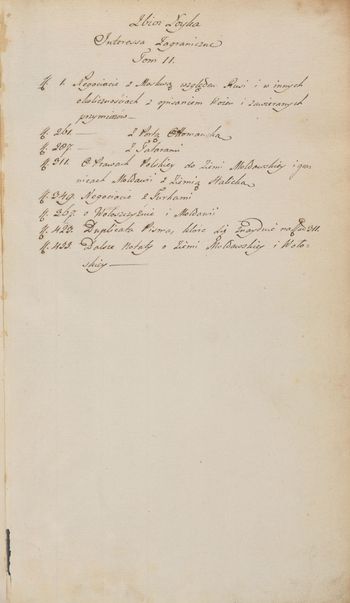 Zbior Loyka
Interessa Zagraniczne
Tom 11.
1. Negociacie z Moskwą względem Rusi i w innych
okolicznościach z opisaniem Wojen i zawieranych
przymierzów
261. z Portą Ottomanską
287. z Tatarami
311. O Prawach Polskiey do Ziemi Mołdawskiey i gra-
nicach Mołdawii z Ziemią Halicką
349. Negociacie z Turkami
367. o Wołoszczyźnie i Mołdawii
423. Duplicata Pisma, które się znayduie na 311.
433. Dalsze Notaty o Ziemi Mołdawskiey i Woło-
skiey